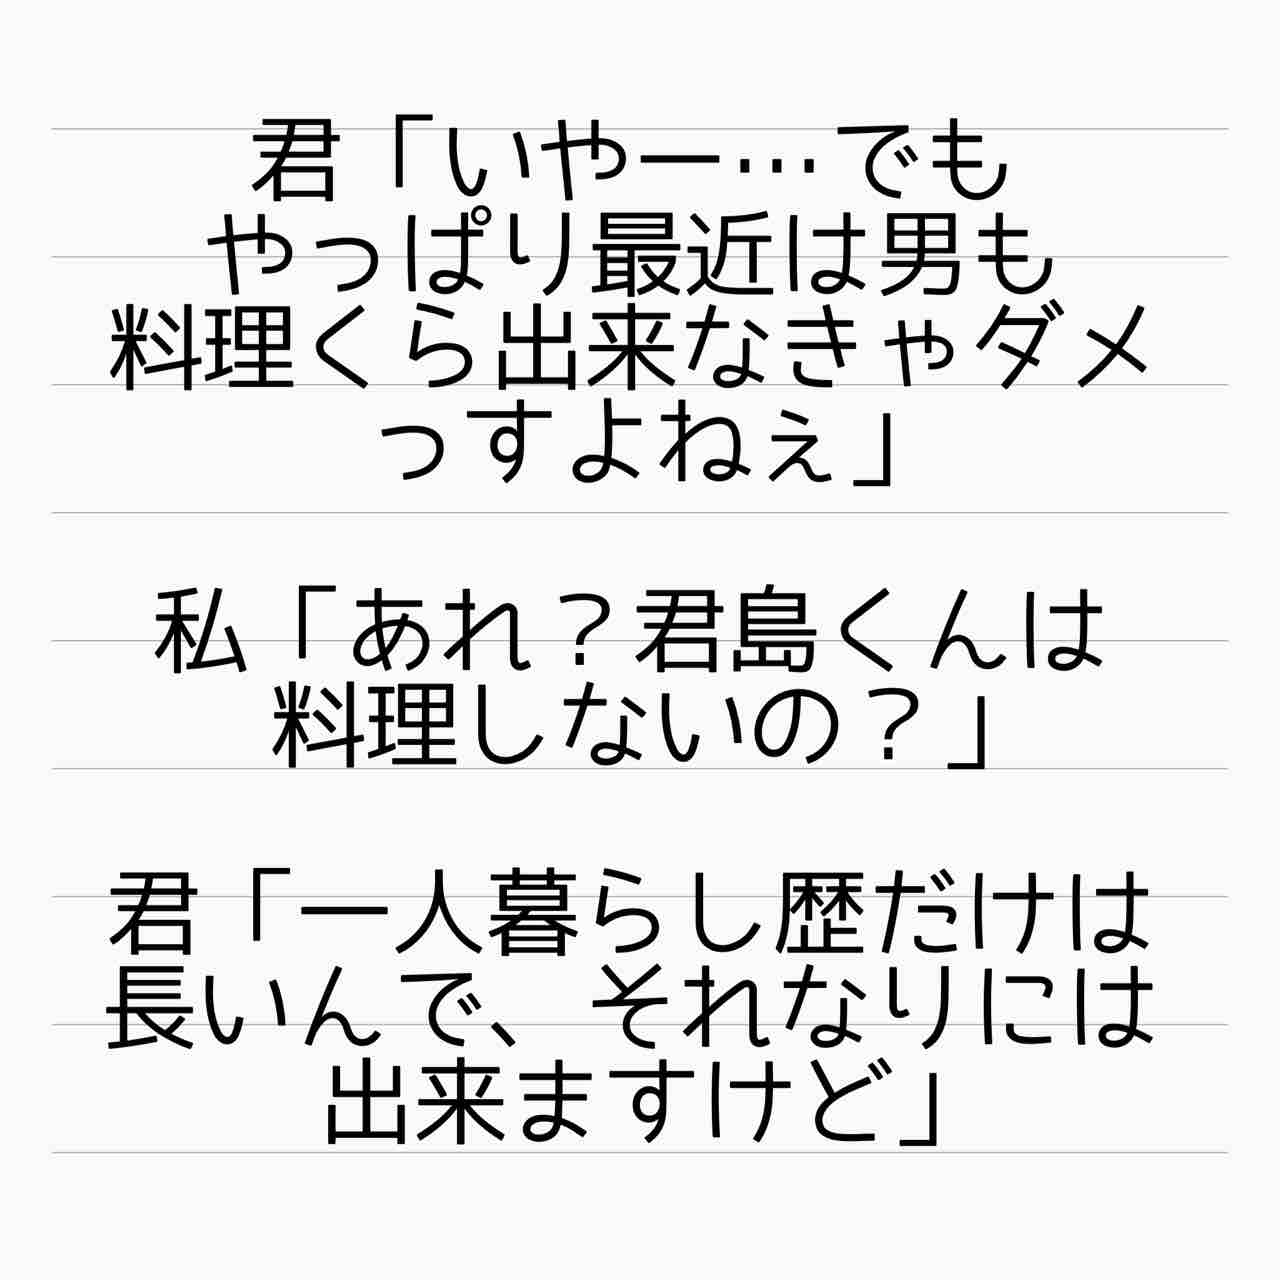 君「いやー…でも
やっぱり最近は男も
料理くら出来なきゃダメ
っすよねぇ」
私「あれ？君島くんは
料理しないの？」
君「一人暮らし歴だけは
長いんで、それなりには
出来ますけど」